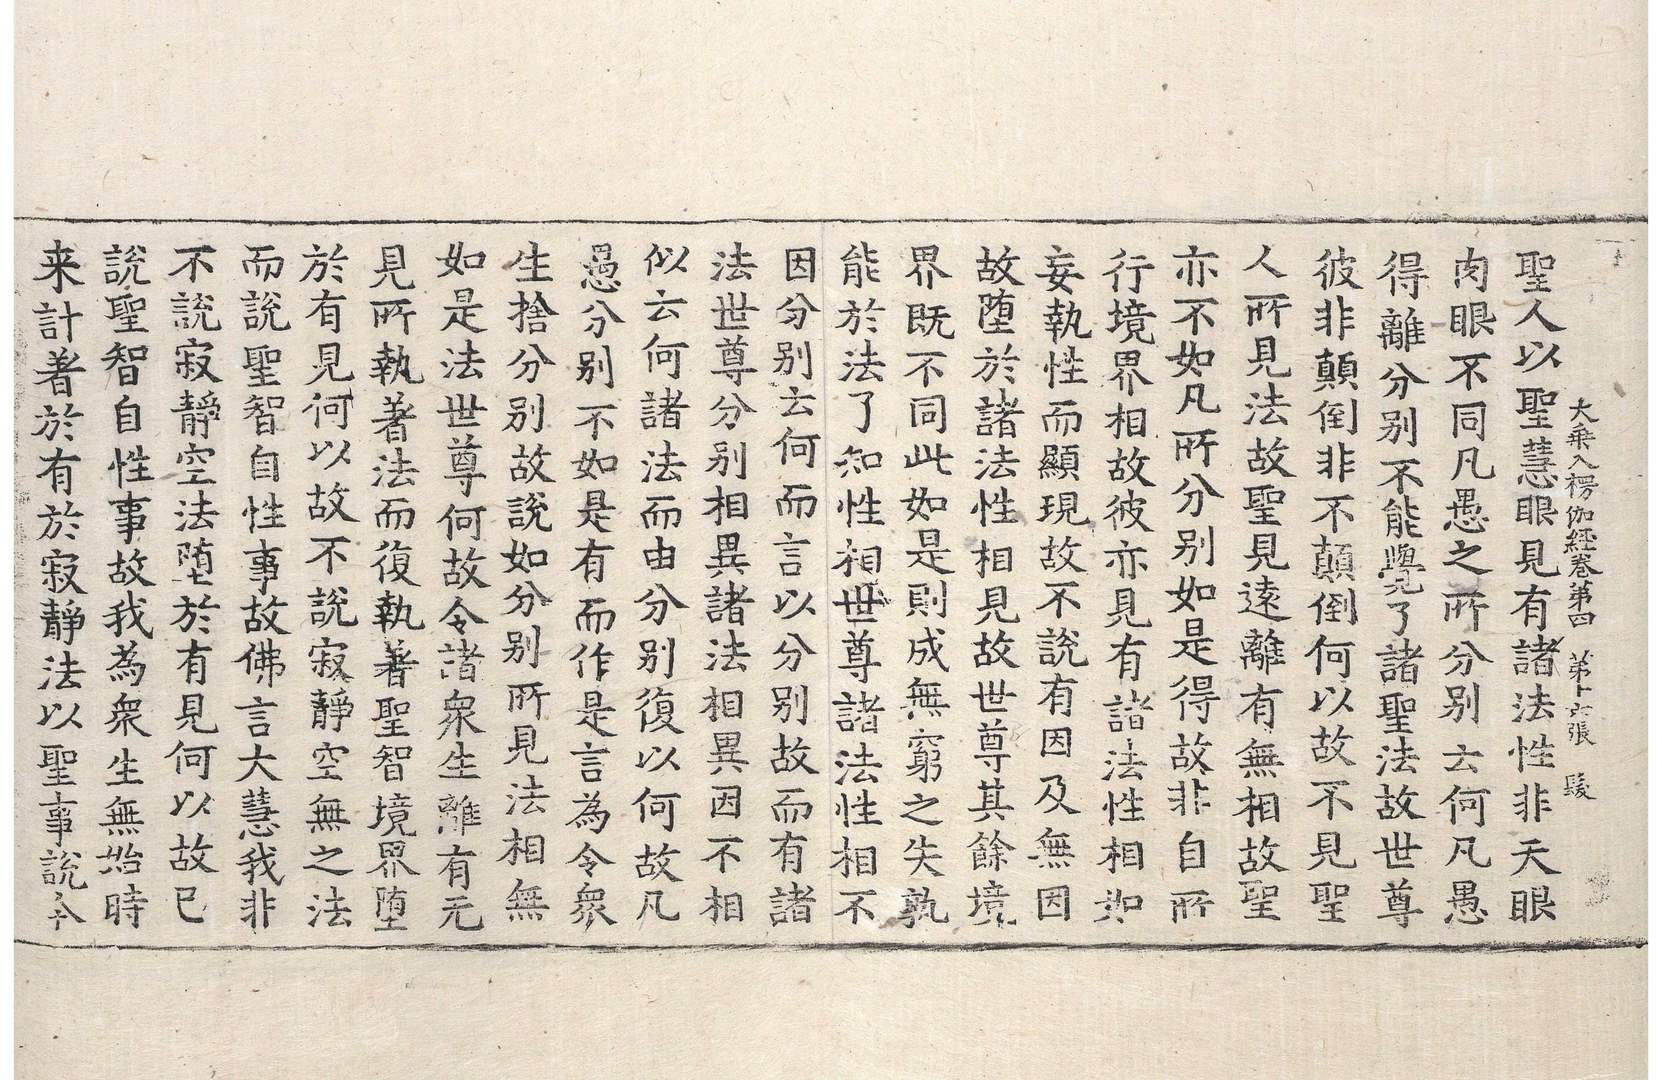 大乘入楞伽經卷第四 第十六張 髲
聖人以聖慧眼見有諸法性非天眼
肉眼不同凡愚之所分别云何凡愚
得離分别不能覺了諸聖法故世尊
彼非顛倒非不顛倒何以故不見聖
人所見法故聖見遠離有無相故聖
亦不如凡所分别如是得故非自所
行境界相故彼亦見有諸法性相如
妄執性而顯現故不說有因及無因
故堕於諸法性相見故世尊其餘境
界既不同此如是則成無窮之失孰
能於法了知性相世尊諸法性相不
因分别云何而言以分别故而有諸
法世尊分别相異諸法相異因不相
似云何諸法而由分别復以何故凡
愚分别不如是有而作是言為令衆
生捨分别故說如分别所見法相無
如是法世尊何故令諸衆生離有无
見所執著法而復執著聖智境界堕
於有見何以故不說寂靜空無之法
而說聖智自性事故佛言大慧我非
不說寂靜空法堕於有見何以故已
說聖智自性事故我為衆生無始時
来計著於有於寂靜法以聖事說令